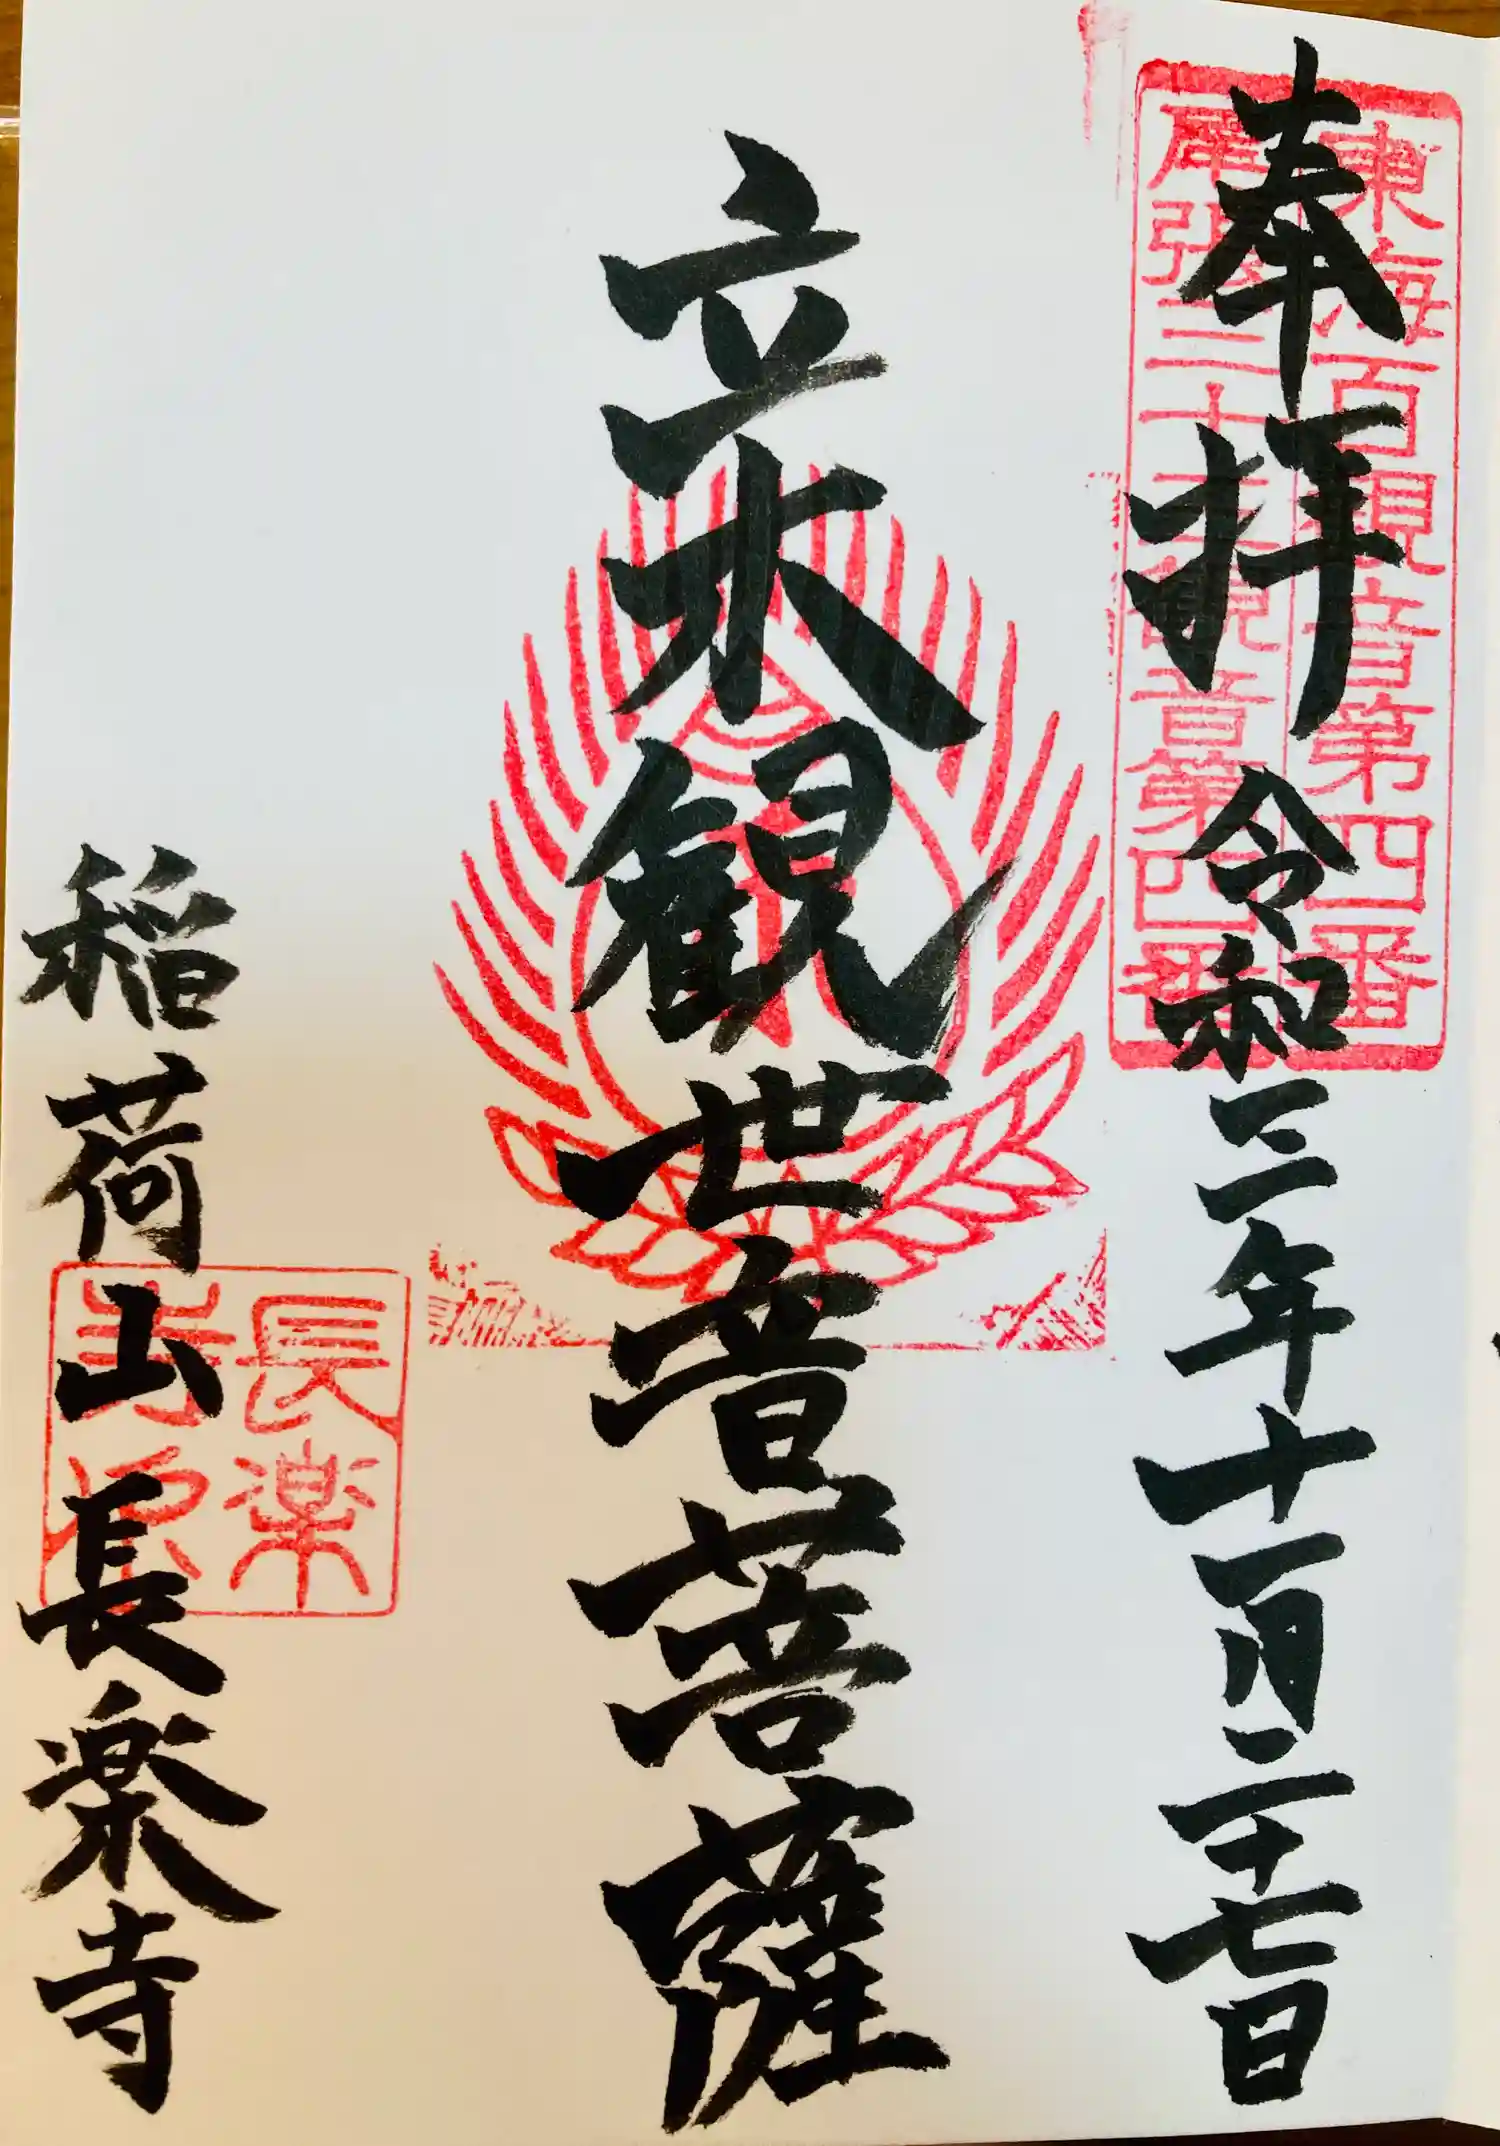 奉拝 令和三年十一月二十七日
東海百観音第四番
尾張三十三観音第四番
立木観世音菩薩
稲荷山長楽寺
長楽
寺印